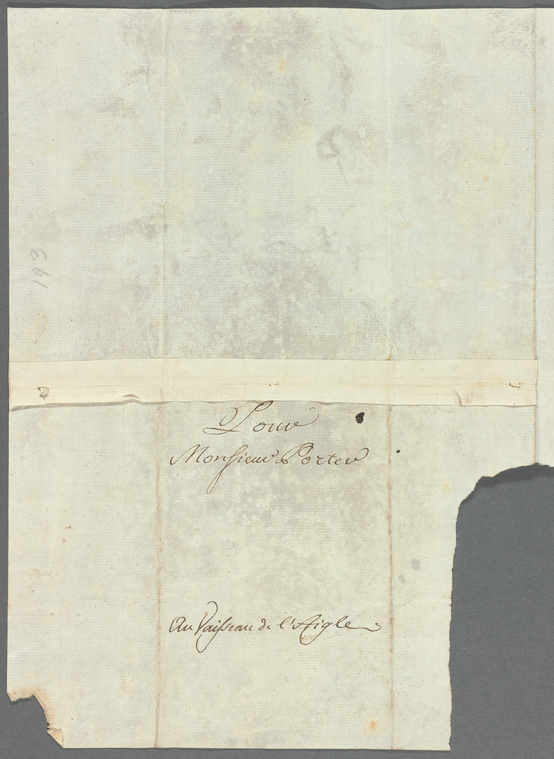 193
Pour
Monsieur Porter
Au Vaisseau de l'Aigle